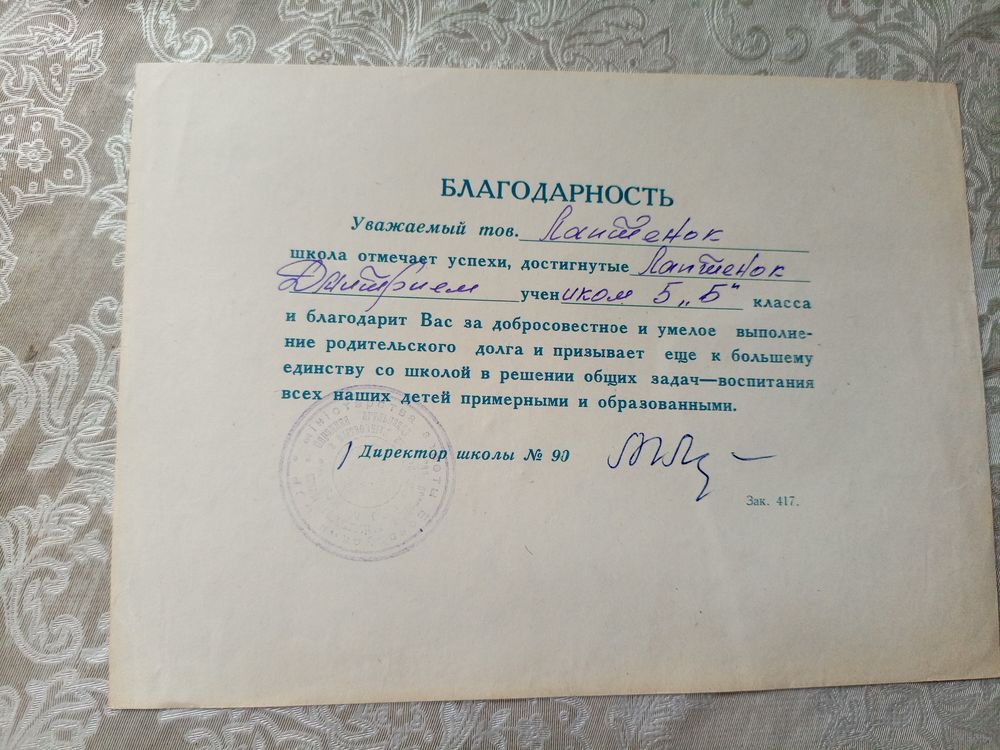 БЛАГОДАРНОСТЬ
Уважаемый тов. Лаптенок
школа отмечает успехи, достигнутые Лаптенок
Дмитрием учеником 5 „Б" класса
и благодарит Вас за добросовестное и умелое выполне-
ние родительского долга и призывает еще к большему
единству со школой в решении общих задач—воспитания
всех наших детей примерными и образованными.
Директор школы № 90
Зак. 417.